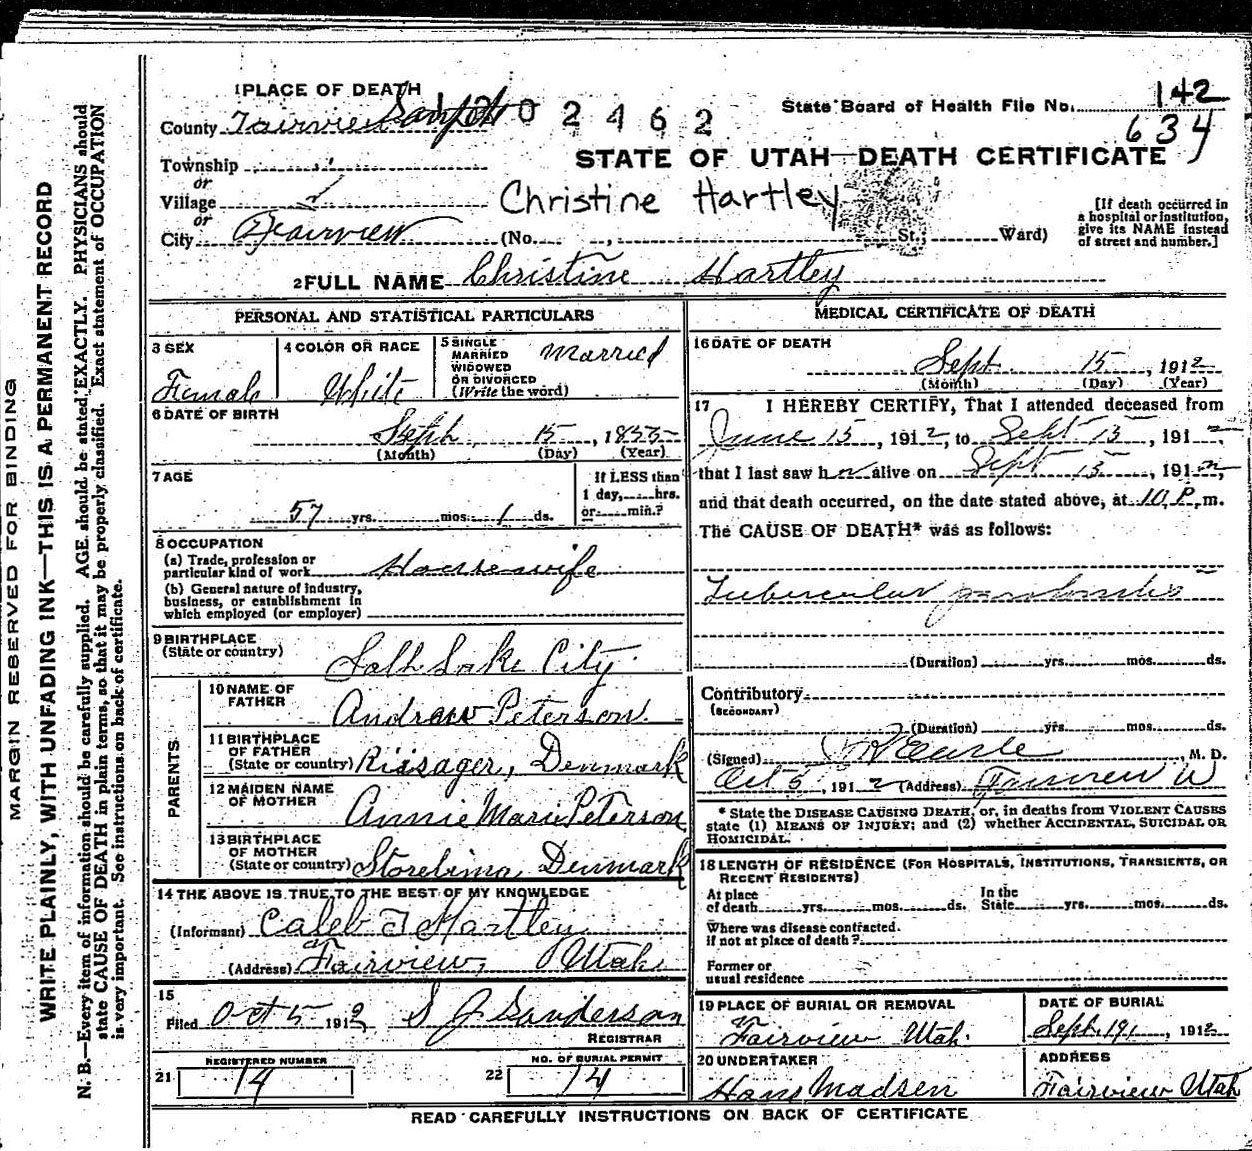 1 PLACE OF DEATH
County Fairview Sanpete
02462
State Board of Health File No. 142
634
STATE OF UTAH—DEATH CERTIFICATE
Township
or
Village
or
City Fairview (No. , St., Ward)
Christine Hartley
[If death occurred in a hospital or institution, give its NAME instead of street and number.]
2 FULL NAME Christine Hartley
PERSONAL AND STATISTICAL PARTICULARS
3 SEX Female
4 COLOR OR RACE White
5 SINGLE MARRIED WIDOWED OR DIVORCED (Write the word) Married
6 DATE OF BIRTH
Sept 15, 1855
(Month) (Day) (Year)
7 AGE
57 yrs. mos. 1 ds.
If LESS than 1 day, hrs. or min.?
8 OCCUPATION
(a) Trade, profession or particular kind of work Housewife
(b) General nature of industry, business, or establishment in which employed (or employer)
9 BIRTHPLACE (State or country) Salt Lake City
PARENTS
10 NAME OF FATHER Andrew Peterson
11 BIRTHPLACE OF FATHER (State or country) Riisager, Denmark
12 MAIDEN NAME OF MOTHER Annie Marie Peterson
13 BIRTHPLACE OF MOTHER (State or country) Denmark
14 THE ABOVE IS TRUE TO THE BEST OF MY KNOWLEDGE
(Informant) Caleb J Hartley
(Address) Fairview, Utah
15
Filed Oct 5 1912 S J Sanderson
REGISTRAR
21 REGISTERED NUMBER 14
22 NO. OF BURIAL PERMIT 14
MEDICAL CERTIFICATE OF DEATH
16 DATE OF DEATH
Sept. 15, 1912
(Month) (Day) (Year)
17 I HEREBY CERTIFY, That I attended deceased from
June 15, 1912, to Sept 15, 1912,
that I last saw her alive on Sept 15, 1912,
and that death occurred, on the date stated above, at 10 P.m.
The CAUSE OF DEATH* was as follows:
Tubercular
(Duration) yrs. mos. ds.
Contributory
(SECONDARY)
(Duration) yrs. mos. ds.
(Signed) M. D.
Oct 5, 1912 (Address) Fairview U
* State the DISEASE CAUSING DEATH, or, in deaths from VIOLENT CAUSES state (1) MEANS OF INJURY; and (2) whether ACCIDENTAL, SUICIDAL OR HOMICIDAL.
18 LENGTH OF RESIDENCE (FOR HOSPITALS, INSTITUTIONS, TRANSIENTS, OR RECENT RESIDENTS)
At place of death yrs. mos. ds. In the State yrs. mos. ds.
Where was disease contracted, if not at place of death?
Former or usual residence
19 PLACE OF BURIAL OR REMOVAL Fairview Utah.
DATE OF BURIAL Sept. 19, 1912
20 UNDERTAKER Hans Madsen
ADDRESS Fairview Utah
READ CAREFULLY INSTRUCTIONS ON BACK OF CERTIFICATE
MARGIN RESERVED FOR BINDING
WRITE PLAINLY, WITH UNFADING INK—THIS IS A PERMANENT RECORD
N. B.—Every item of information should be carefully supplied. AGE should be stated EXACTLY. PHYSICIANS should
state CAUSE OF DEATH in plain terms, so that it may be properly classified. Exact statement of OCCUPATION
is very important. See instructions on back of certificate.